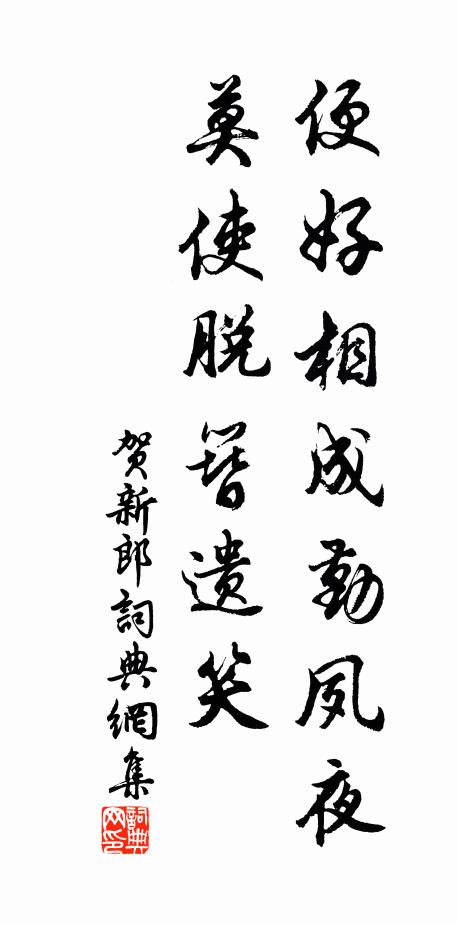 便好相成勤夙夜
莫使脱簪遗笑
贺新郎詞典網集
詞典
网印